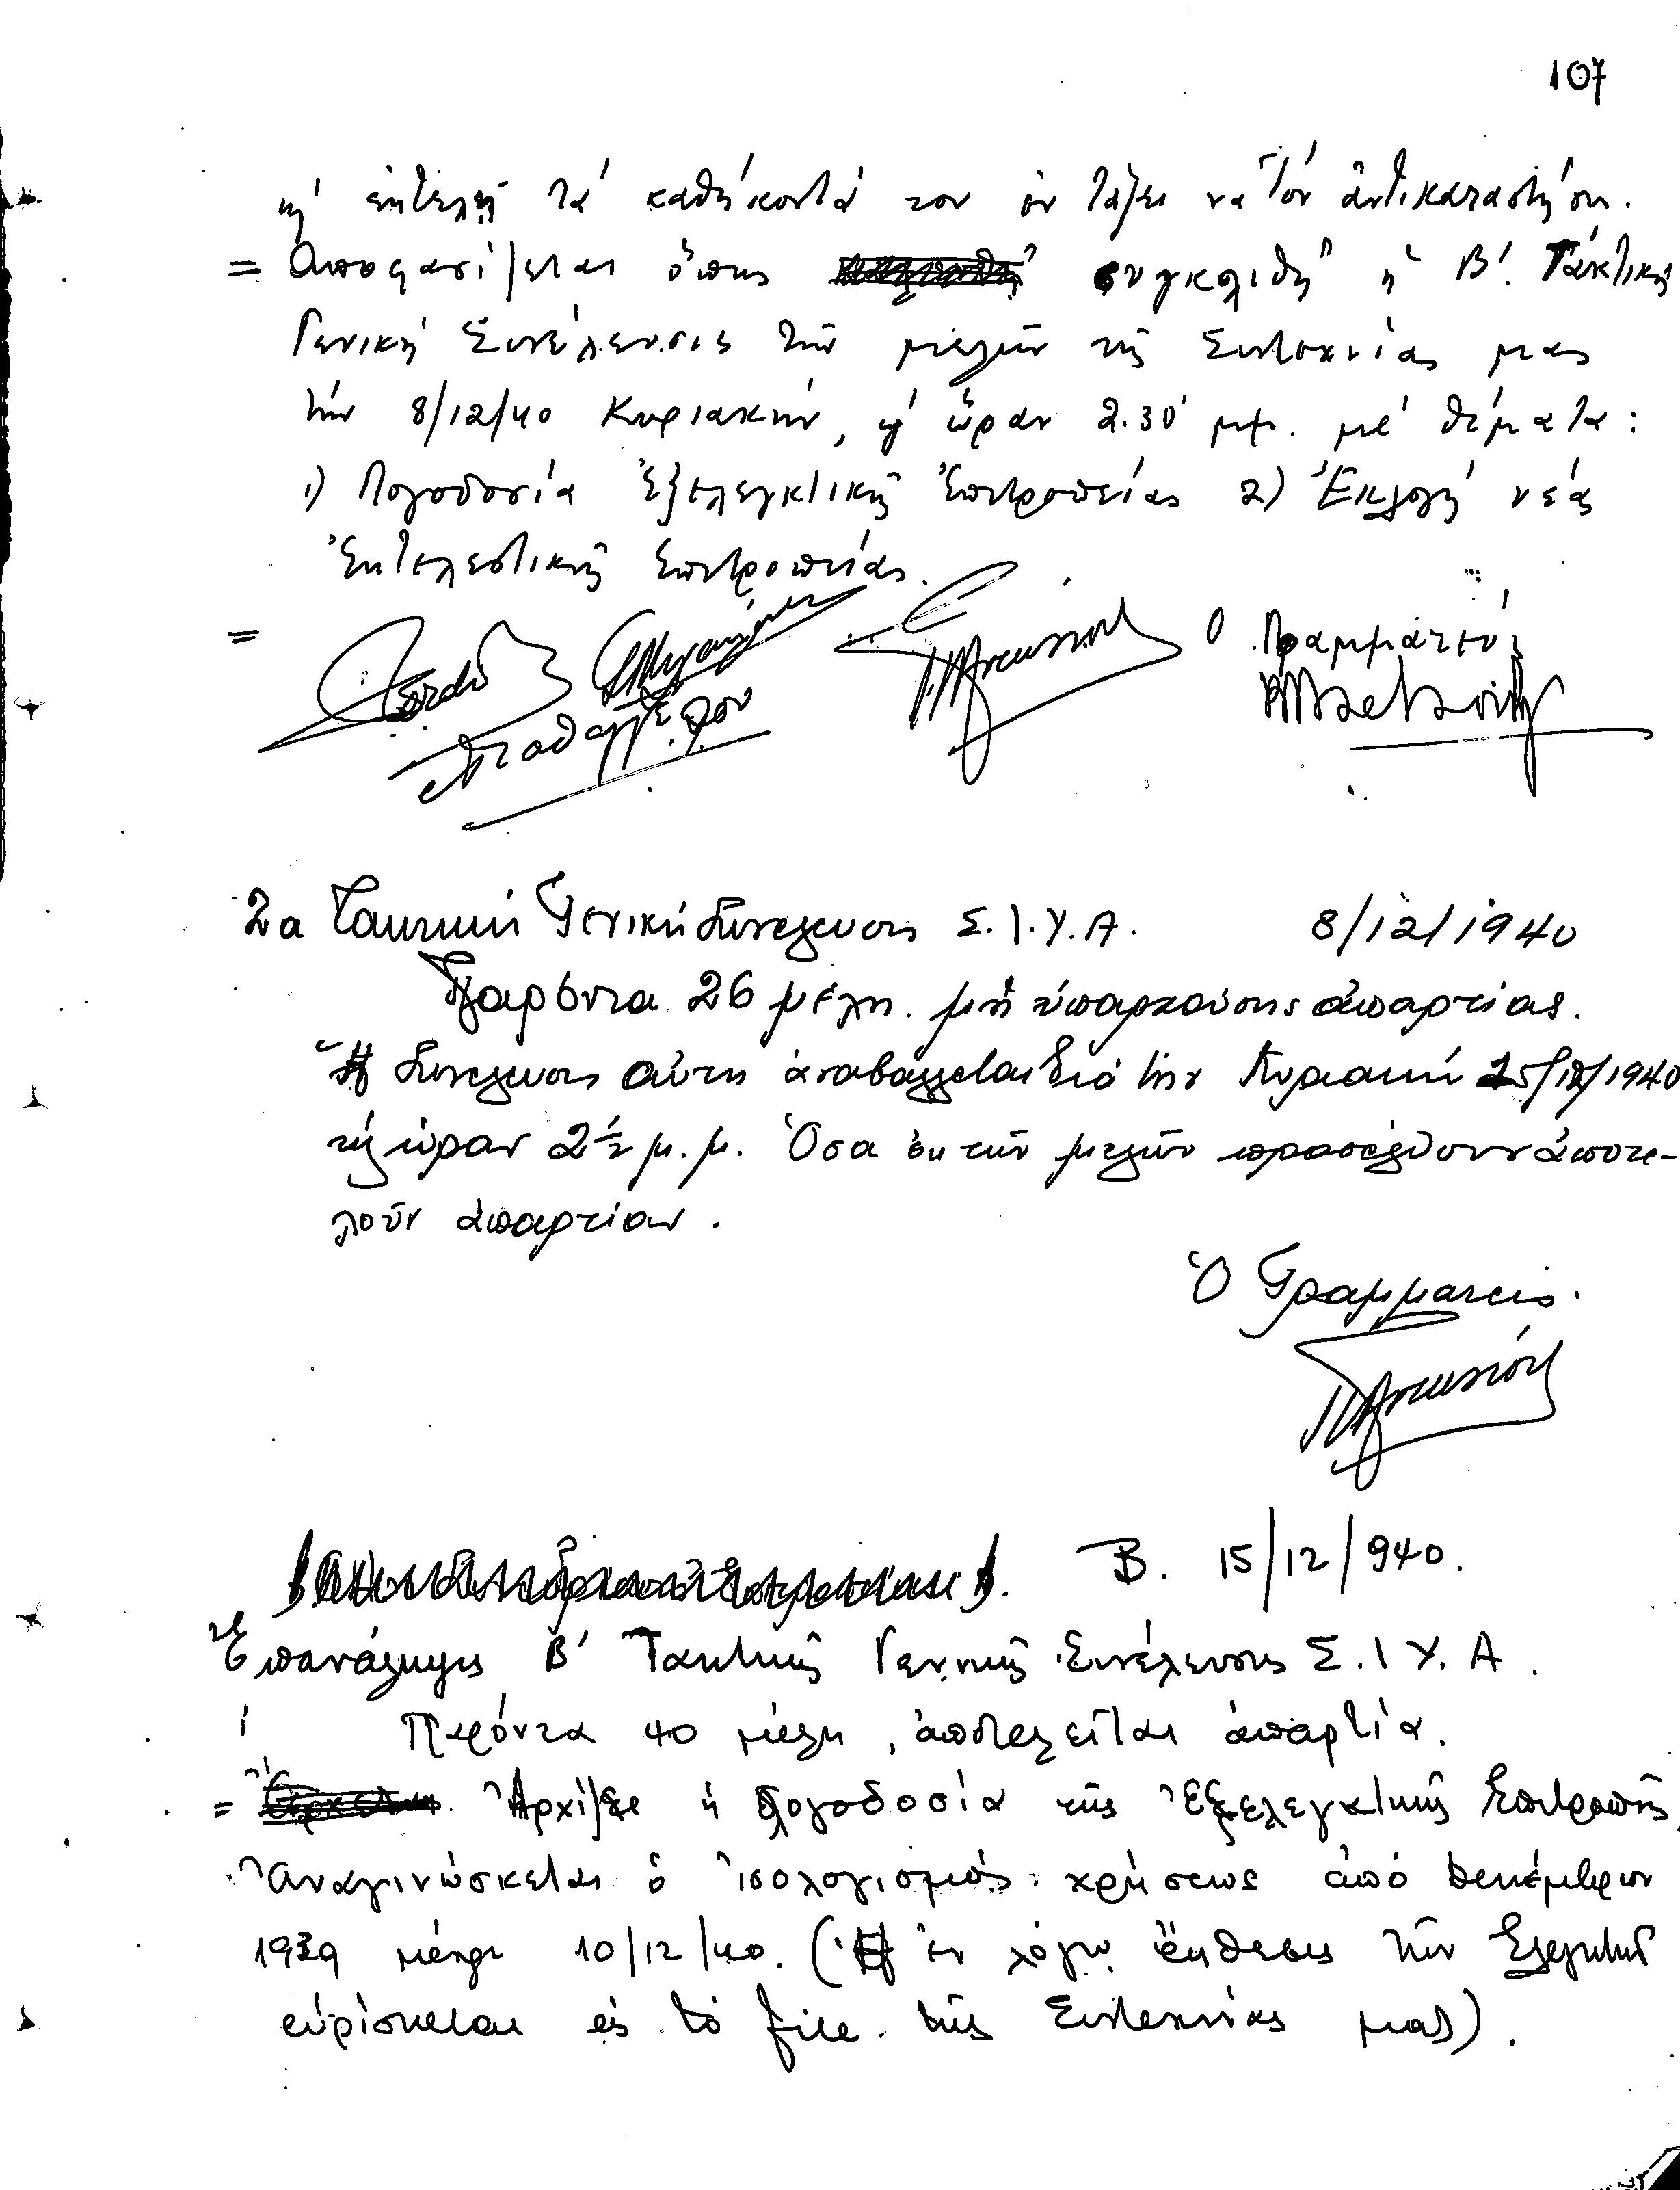 107
ἐκτελῇ τά καθήκοντά του ἐν τάξει νά τόν ἀντικαταστήσῃ.
= Ἀποφασίζεται ὅπως συγκληθῇ ἡ Β΄. Τακτική
Γενική Συνέλευσις τῶν μελῶν τῆς Συντεχνίας μας
τήν 8/12/40 Κυριακήν, ὥραν 2.30 μμ. μέ θέματα:
1) Λογοδοσία Ἐξελεγκτικῆς Ἐπιτροπείας 2) Ἐκλογή νέας
Ἐκτελεστικῆς Ἐπιτροπείας.
= Ὁ Γραμματεύς
2α Τακτική Γενική Συνέλευσις Σ.Ι.Υ.Α. 8/12/1940
Παρόντα 26 μέλη. μή ὑπαρχούσης ἀπαρτίας.
Ἡ Συνέλευσις αὕτη ἀναβάλλεται διά τήν Κυριακήν 15/12/1940
τήν ὥραν 2½ μ.μ. Ὅσα ἐκ τῶν μελῶν προσέλθουν ἀποτε-
λοῦν ἀπαρτίαν.
Ὁ Γραμματεύς.
Β. 15/12/940.
Ἐπανάληψις Β΄ Τακτικῆς Γενικῆς Συνέλευσις Σ.Ι.Υ.Α.
Παρόντα 40 μέλη, ἀποτελεῖται ἀπαρτία.
= Ἀρχίζει ἡ λογοδοσία τῆς Ἐξελεγκτικῆς Ἐπιτροπῆς.
Ἀναγινώσκεται ὁ ἰσολογισμός χρήσεως ἀπό Δεκέμβριον
1939 μέχρι 10/12/40. (Ἡ ἐν λόγῳ ἔκθεσις τῶν Ἐλεγκτῶν
εὑρίσκεται εἰς τό file τῆς Συντεχνίας μας).